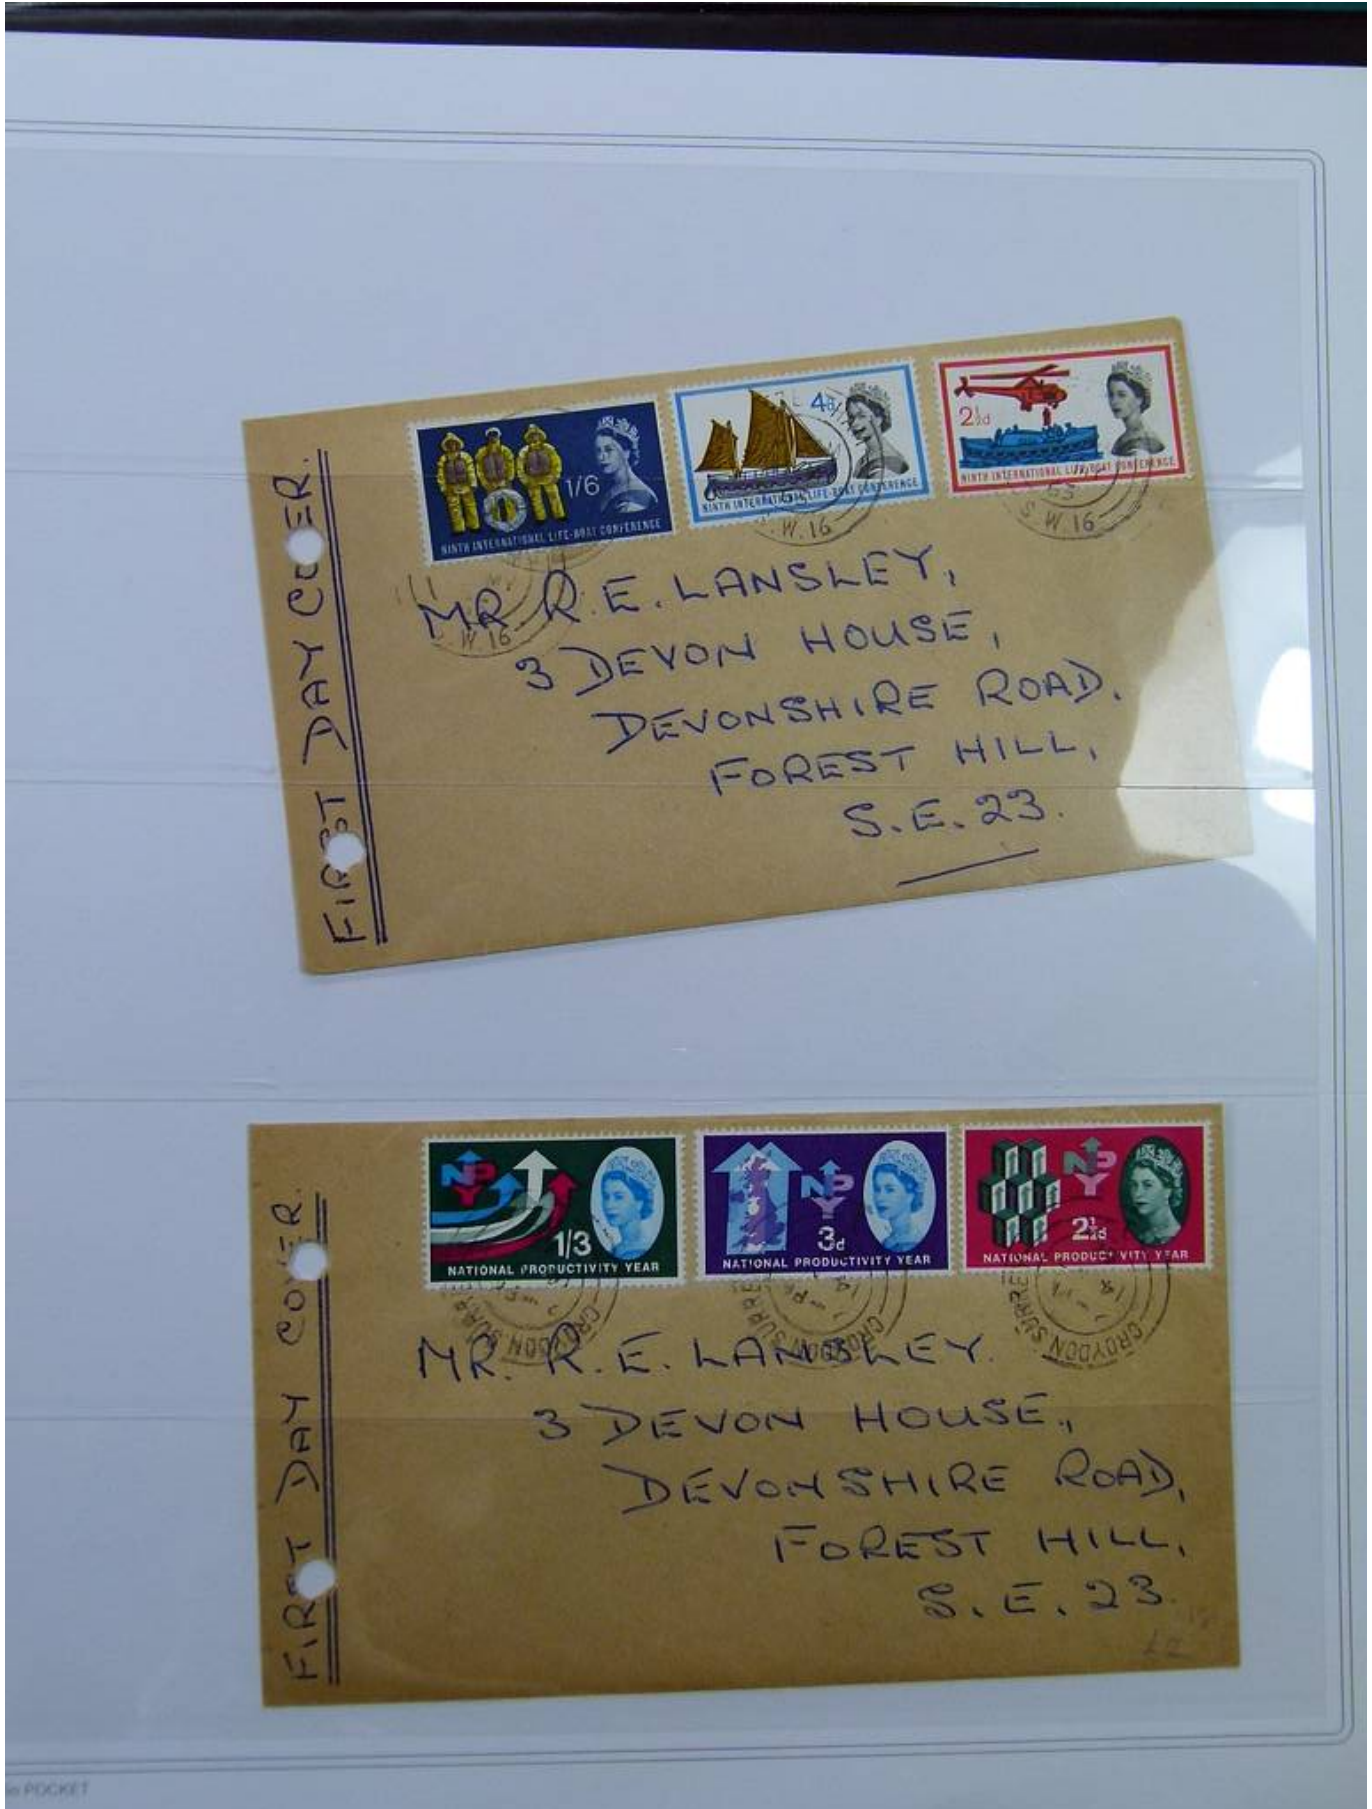 FIRST DAY COVER.
1/6
NINTH INTERNATIONAL LIFE-BOAT CONFERENCE
4d
NINTH INTERNATIONAL LIFE-BOAT CONFERENCE
2½d
NINTH INTERNATIONAL LIFE-BOAT CONFERENCE
S.W.16
S.W.16
W 16
MR R.E. LANSLEY,
3 DEVON HOUSE,
DEVONSHIRE ROAD.
FOREST HILL,
S.E. 23.
FIRST DAY COVER.
NPY
1/3
NATIONAL PRODUCTIVITY YEAR
NPY
3d
NATIONAL PRODUCTIVITY YEAR
NPY
2½d
NATIONAL PRODUCTIVITY YEAR
CROYDON SURREY
CROYDON SURREY
CROYDON SURREY
MR. R.E. LANSLEY.
3 DEVON HOUSE,
DEVONSHIRE ROAD,
FOREST HILL,
S.E. 23.
POCKET